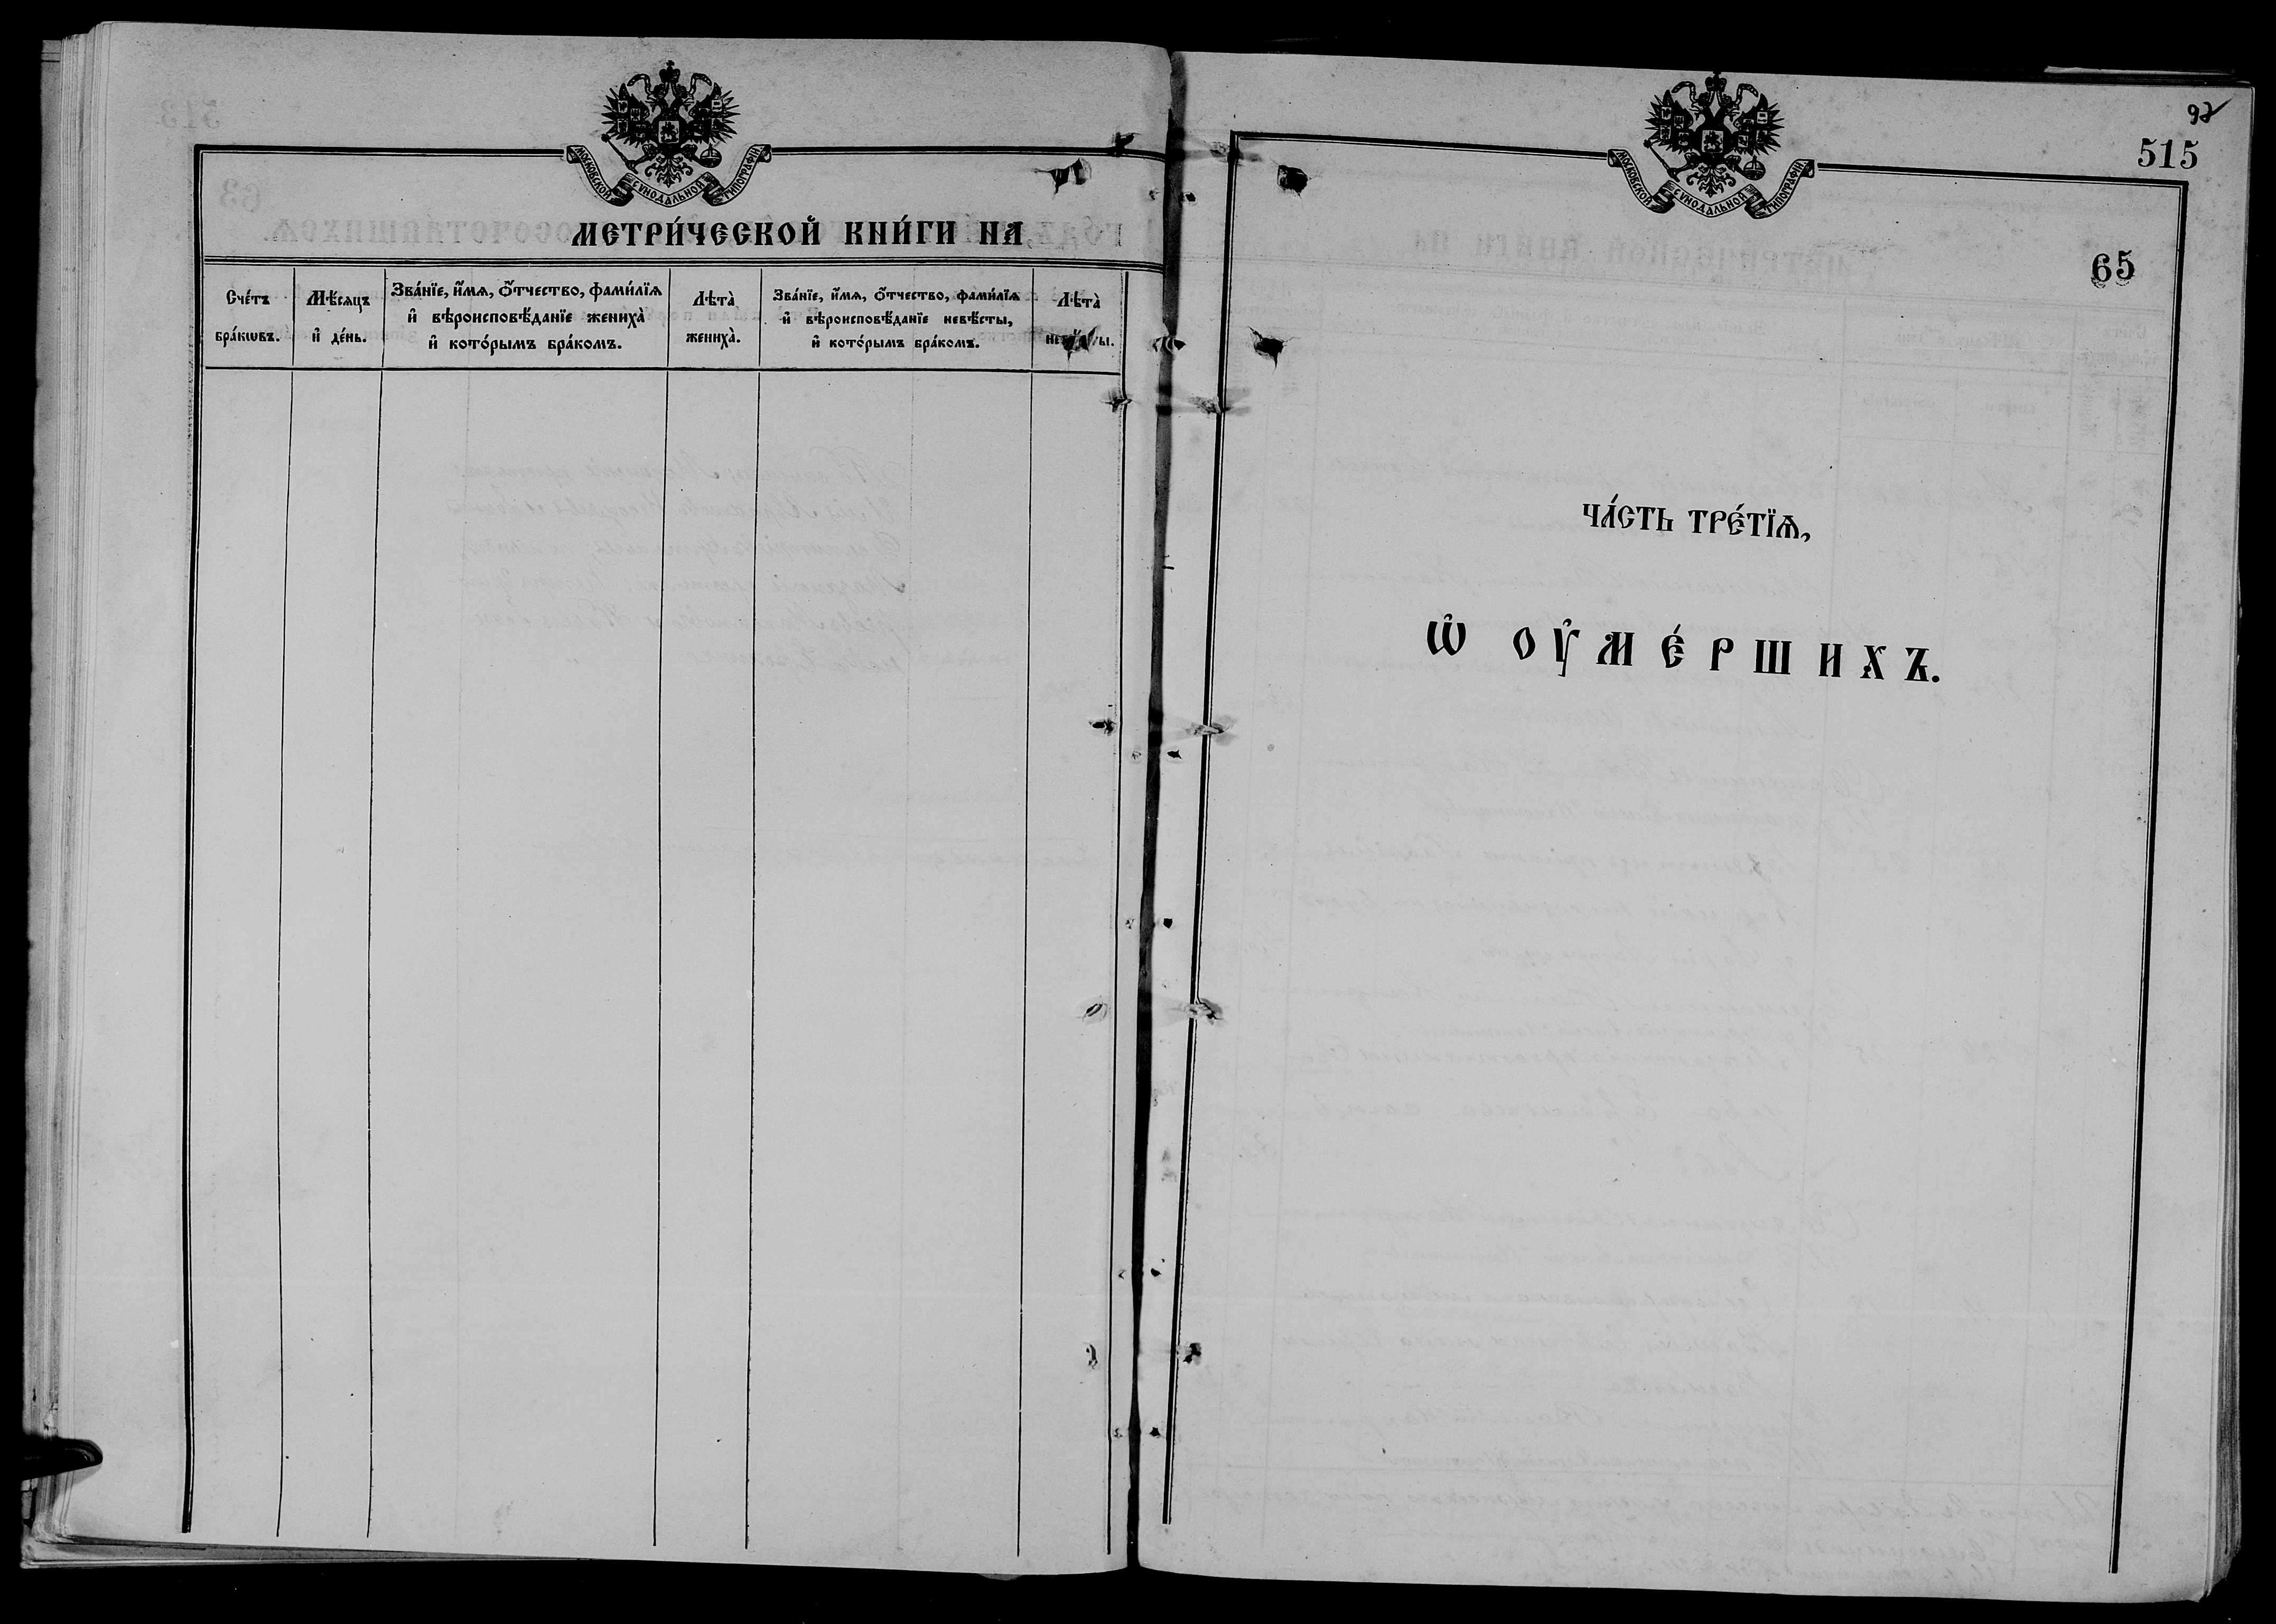 МОСКОВСКОЙ СѴНОДАЛЬНОЙ ТИПОГРАФІИ
МЕТРИ́ЧЕСКОЙ КНИ́ГИ НА
Сче́тъ
бра́кѡвъ.
Мѣ́сяцъ
и҆ де́нь.
Зва́нїе, и҆́мѧ, ѻ҆́тчество, фами́лїѧ
и҆ вѣроисповѣ́данїе жениха̀
и҆ кото́рымъ бра́комъ.
Лѣта̀
жениха̀.
Зва́нїе, и҆́мѧ, ѻ҆́тчество, фами́лїѧ
и҆ вѣроисповѣ́данїе невѣ́сты,
и҆ кото́рымъ бра́комъ.
Лѣта̀
невѣ́сты.
92
515
МОСКОВСКОЙ СѴНОДАЛЬНОЙ ТИПОГРАФІИ
65
ЧА́СТЬ ТРЕ́ТЇѦ,
Ѡ҆ ОУ҆МЕ́РШИХЪ.